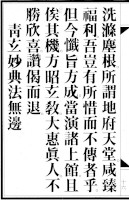 洗滌塵根所謂地府天堂咸臻
福利吾豈有所惜而不傳者乎
但今懺旨方成當演諸上館且
俟其機方昭玄敎大惠眞人不
勝欣喜讚偈而退
靑玄妙典法無邊